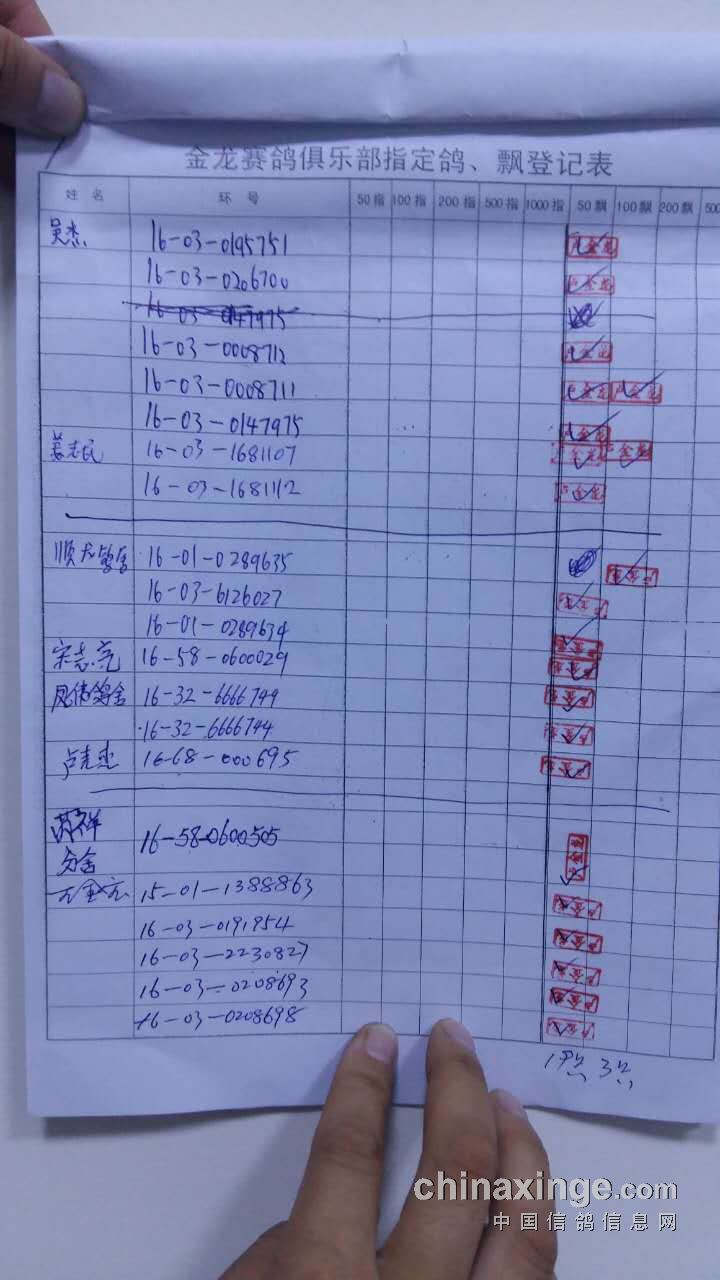 金龙赛鸽俱乐部指定鸽、飘登记表
姓 名 环 号 50指 100指 200指 500指 1000指 50飘 100飘 200飘 500
吴杰 16-03-0195751
16-03-0206700
16-03-0147975
16-03-0008712
16-03-0008711
16-03-0147975
姜志民 16-03-1681107
16-03-1681112
16-01-0289635
16-03-6126027
16-01-0289634
宋志亮 16-58-0600029
凤倩鸽舍 16-32-6666749
16-32-6666744
16-68-000695
16-58-0600505
15-01-1388863
16-03-0191954
16-03-2230827
16-03-0208693
16-03-0208698
chinaxinge.com
中国信鸽信息网